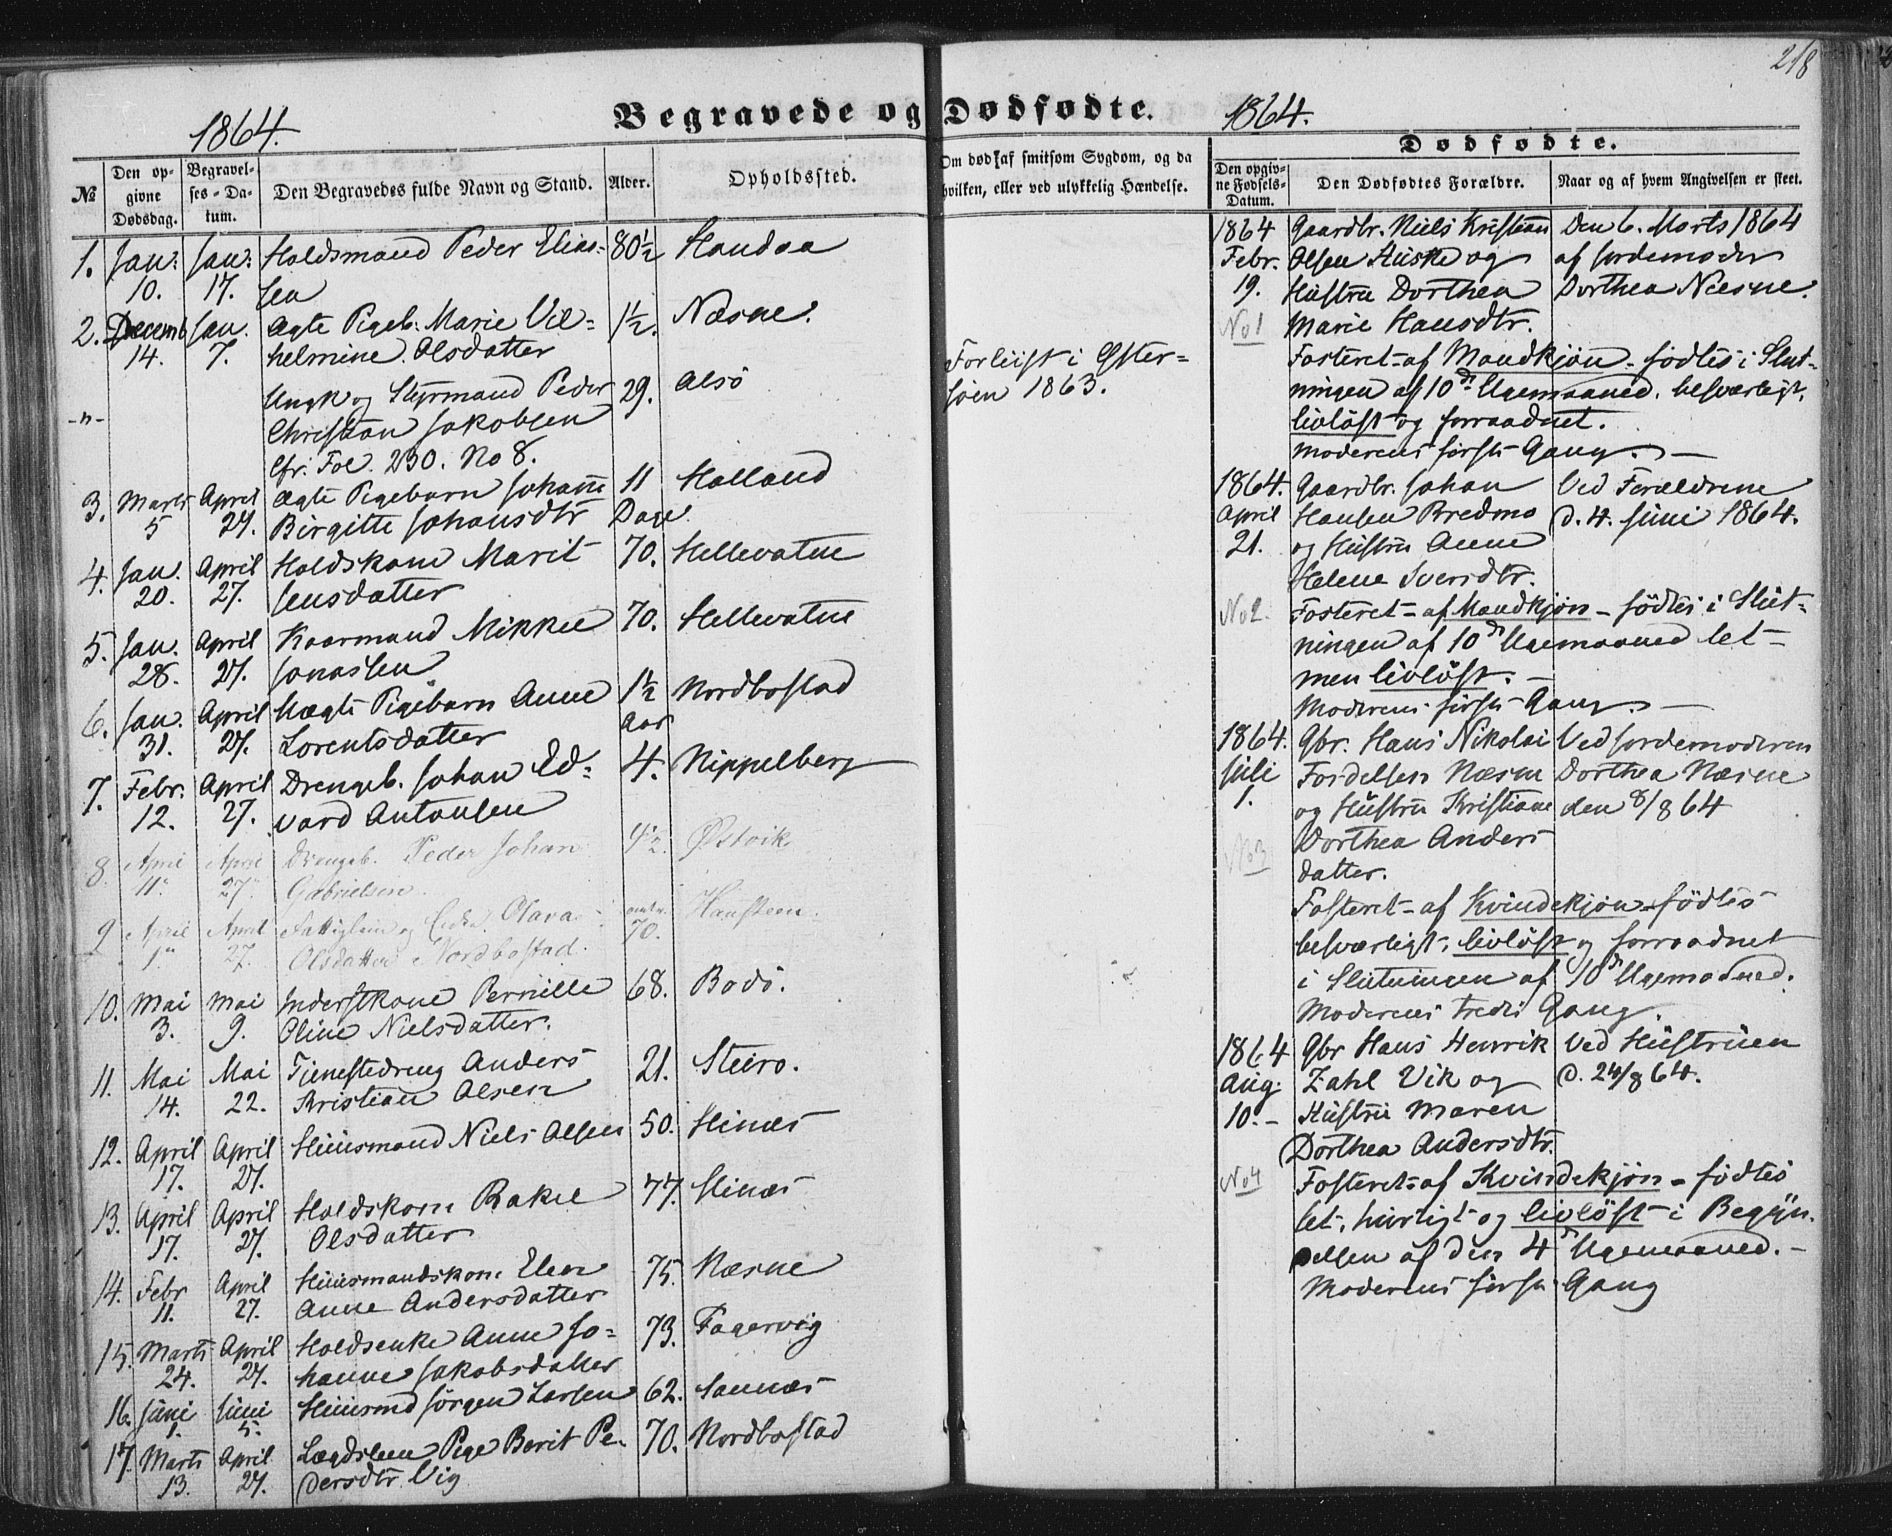 218
1864.
Begravede og Dødfødte.
1864.
№
Den opgivne Dødsdag.
Begravelses-Datum.
Den Begravedes fulde Navn og Stand.
Alder.
Opholdssted.
Om død af smitsom Sygdom, og da hvilken, eller ved ulykkelig Hændelse.
Dødfødte.
Den opgivne Fødsels-Datum.
Den Dødfødtes Forældre.
Naar og af hvem Angivelsen er skeet.
1. Jan: Jan: Holdsmand Peder Elias- 80½ Handaa
10. 17. sen
2. Decemb Jan. Ægte Pigeb. Marie Vil= 1½. Næsne.
14. 7. helmine Olsdatter
-"- Ungk og Styrmand Peder 29. Alsö Forliist i Øster=
Christian Jakobsen söen 1863.
cfr. Fol. 230. No 8.
3. Marts April Ægte Pigebarn Johanne 11 Halland
5 27. Birgitte Johansdtr Dage
4. Jan. April Holdskone Marit 70. Hellevatne
20. 27. Jensdatter
5. Jan. April Kaarmand Mikkel 70. Hellevatne
28. 27. Jonassen
6. Jan. April Uægte Pigebarn Anne 1½ Nordbostad
31. 27. Lorentsdatter Aar
7. Febr. April Drengeb. Johan Ed= 4. Nippelberg
12. 27. vard Antonsen
8. April April Drengeb. Peder Johan 4½. Østvik
11. 27. Gabrielsen
9 April April Fattiglem og Enke Olava omtr. Hansteen.
1. 27. Olsdatter Nordbostad. 70.
10. Mai Mai Inderstkone Pernille 68. Bodö.
3. 9. Oline Nielsdatter.
11. Mai Mai Tjenestedreng Anders 21. Steiro.
14. 22. Kristian Olsen
12. April April Huusmand Niels Olsen 50. Hinæs
17. 27.
13. April April Holdskone Rakel 77. Hinæs
17. 27. Olsdatter
14. Febr April Huusmandskone Elen 75. Næsne
11. 27. Anne Andersdatter
15. Marts April Holdsenke Anne Jo= 73. Fagervig
24. 27. hanne Jakobsdatter
16. Juni Juni Huusmd Jørgen Larsen 62. Sannæs
1. 5.
17. Marts April Lægdslem Pige Berit Pe- 70. Nordbostad
13. 27. dersdtr. Vig
1864 Gaardbr. Niels Kristian Den 6. Marts 1864
Febr. Olsen Huske og af Jordemoder
19. Hustru Dorthea Dorthea Næsne.
No 1 Marie Hansdtr.
Fosteret - af Mandkjøn - födtes i Slut-
ningen af 10de Ugemaaned, besværligt,
livlöst og forraadnet.
Moderens förste Gang. —
1864. Gaardbr. Johan Ved Forældrene
April Hansen Bredmo d. 4. Juni 1864.
21. og Hustru Anne
Helene Iversdtr.
No 2. Fosteret - af Mandkjön - födtes i Slut-
ningen af 10de Ugemaaned let -
men livlöst. —
Moderens förste Gang. —
1864. Gbr. Hans Nikolai Ved Jordemoderen
Juli Fordelsen Næsne Dorthea Næsne
1. og Hustru Kristiane den 8/8 64
No 3 Dorthea Anders
datter.
Fosteret - af Kvindekjön - födtes
besværligt, livlöst og forraadnet
i Slutningen af 10de Ugemaaned.
Moderens tredie Gang.
1864 Gbr Hans Henrik Ved Hustruen
Aug. Zahl Vik og d. 24/8 64.
10.- Hustru Maren
Dorthea Andersdtr.
No 4 Fosteret - af Kvindekjön - födtes
let, hurtigt og livlöst i Begyn-
delsen af den 4de Ugemaaned. -
Moderens förste Gang